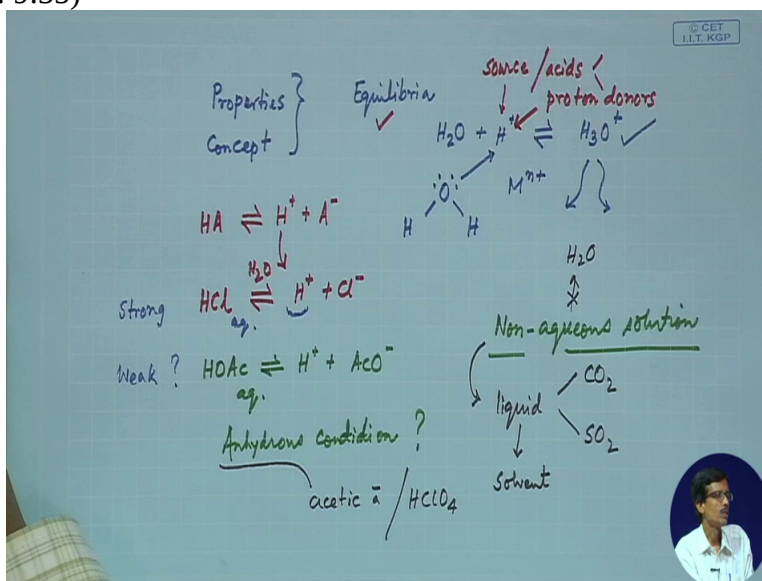 9:33)
© CET
I.I.T. KGP
Properties
Concept
Equilibria
source / acids
proton donors
H2O + H+ ⇌ H3O+
Mn+
:O:
H H
HA ⇌ H+ + A-
H2O
Strong HCl ⇌ H+ + Cl-
aq.
Weak ? HOAc ⇌ H+ + AcO-
aq.
Anhydrous condition ?
acetic a / HClO4
H2O
Non-aqueous solution
liquid CO2
SO2
Solvent